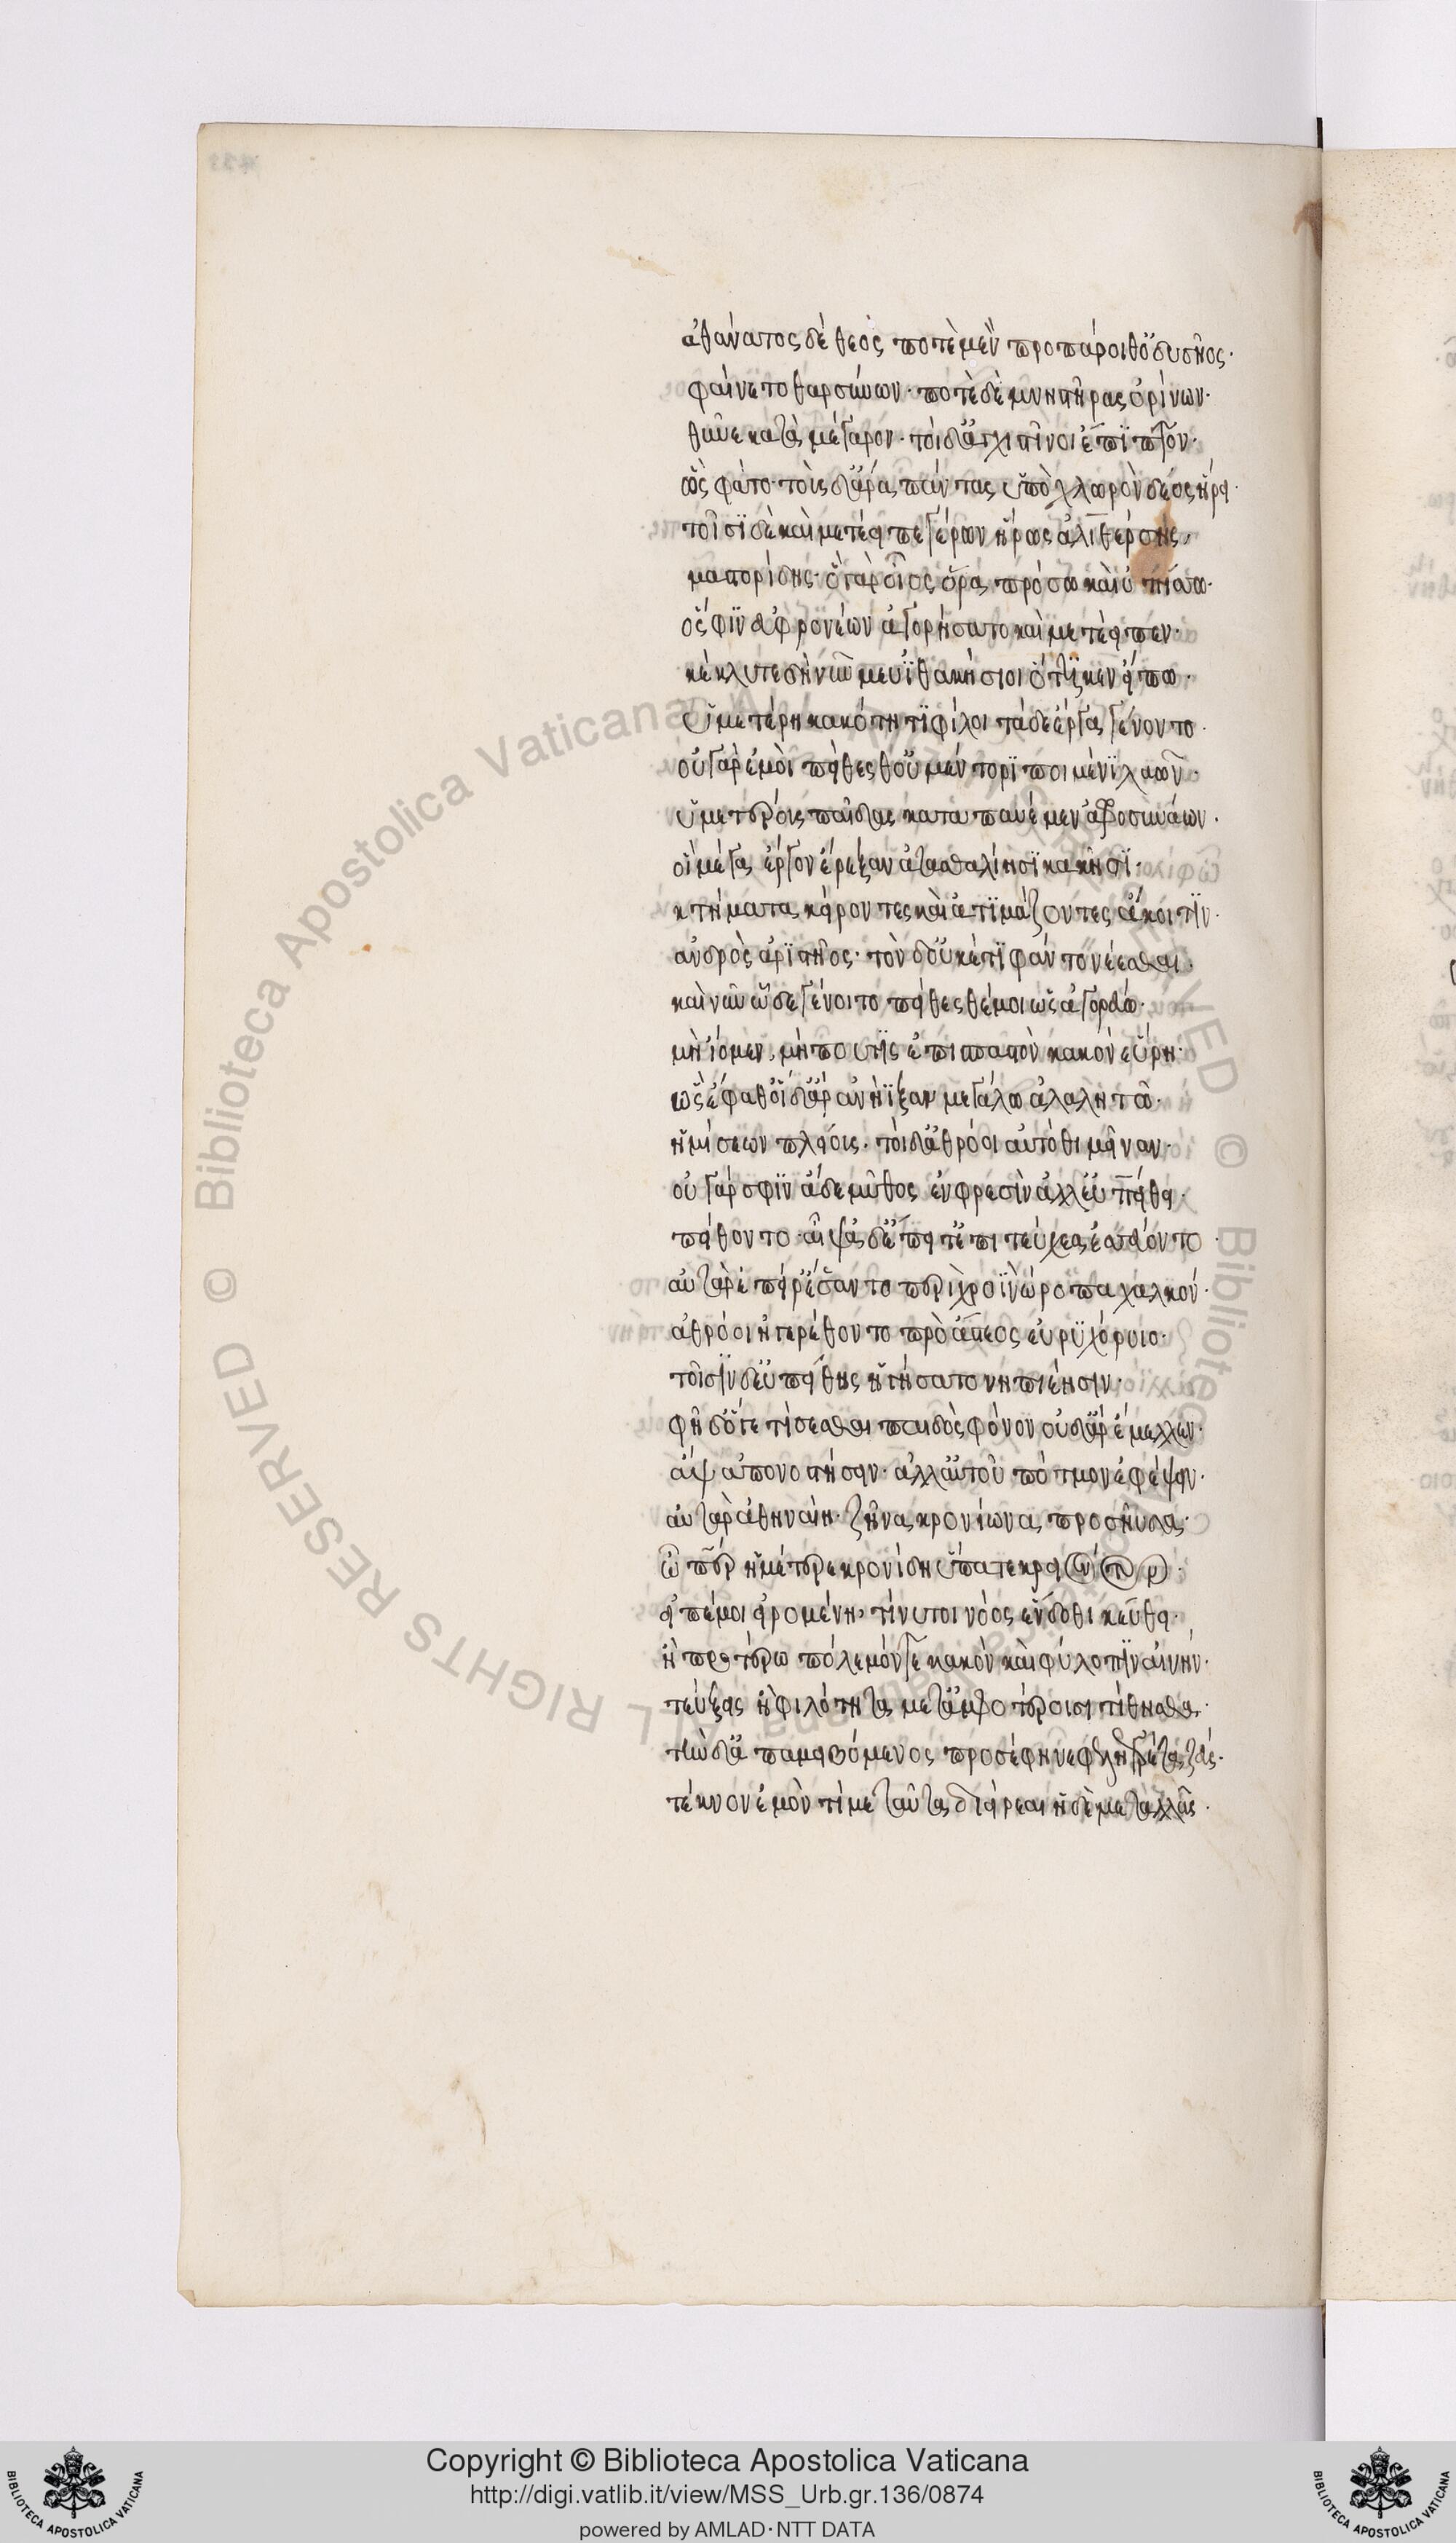 ἀθάνατος δὲ θεὸς ποτὲ μὲν προπάροιθ' ὀδυσῆος·
φαίνετο θαρσύνων· ποτὲ δὲ μνηστῆρας ὀρίνων·
θῦνε κατὰ μέγαρον· τοὶ δ' ἀγχιστῖνοι ἔπιπτον·
ὣς φάτο· τοὺς δ' ἄρα πάντας ὑπὸ χλωρὸν δέος ἥρει·
τοῖσι δὲ καὶ μετέειπε γέρων ἥρως ἁλιθέρσης,
μαστορίδης· ὁ γὰρ οἶος ὅρα πρόσω καὶ ὀπίσσω·
ὅ σφιν ἐϋφρονέων ἀγορήσατο καὶ μετέειπεν·
κέκλυτε δὴ νῦν μευ ἰθακήσιοι ὅττί κεν εἴπω·
ὑμετέρῃ κακότητι φίλοι τάδε ἔργα γένοντο·
οὐ γὰρ ἐμοὶ πείθεσθ' οὐ μέντορι ποιμένι λαῶν·
ὑμετέρους παῖδας καταπαυέμεν ἀφροσυνάων·
οἳ μέγα ἔργον ἔρεξαν ἀτασθαλίῃσι κακῇσι·
κτήματα κείροντες καὶ ἀτιμάζοντες ἄκοιτιν·
ἀνδρὸς ἀριστῆος· τὸν δ' οὐκέτι φάντο νέεσθαι·
καὶ νῦν ὧδε γένοιτο πείθεσθέ μοι ὡς ἀγορεύω·
μὴ ἴομεν, μή πού τις ἐπίσπαστον κακὸν εὕρῃ·
ὣς ἔφαθ' οἱ δ' ἄρ' ἀνήϊξαν μεγάλῳ ἀλαλητῷ·
ἡμίσεων πλείους· τοὶ δ' ἀθρόοι αὐτόθι μεῖναν·
οὐ γάρ σφιν ἅδε μῦθος ἐν φρεσὶν ἀλλ' εὐπείθει·
πείθοντο· αἶψα δ' ἔπειτ' ἐπὶ τεύχεα ἐσσεύοντο
αὐτὰρ ἐπεί ῥ' ἕσσαντο περὶ χροῒ νώροπα χαλκόν·
ἀθρόοι ἠγερέθοντο πρὸ ἄστεος εὐρυχόροιο·
τοῖσιν δ' εὐπείθης ἡγήσατο νηπιέῃσιν·
φῆ δ' ὅγε τίσεσθαι παιδὸς φόνον οὐδ' ἄρ' ἔμελλεν·
ἂψ ἀπονοστήσειν· ἀλλ' αὐτοῦ πότμον ἐφέψειν·
αὐτὰρ ἀθηναίη· ζῆνα κρονίωνα προσηύδα·
ὦ πάτερ ἡμέτερε κρονίδη ὕπατε κρειόντων·
εἰπέ μοι εἰρομένῃ, τί νύ τοι νόος ἔνδοθι κεύθει·
ἢ προτέρω πόλεμόν τε κακὸν καὶ φύλοπιν αἰνήν·
τεύξεις ἢ φιλότητα μετ' ἀμφοτέροισι τίθησθα·
τὴν δ' ἀπαμειβόμενος προσέφη νεφεληγερέτα ζεύς·
τέκνον ἐμὸν τί με ταῦτα διείρεαι ἠδὲ μεταλλᾷς·